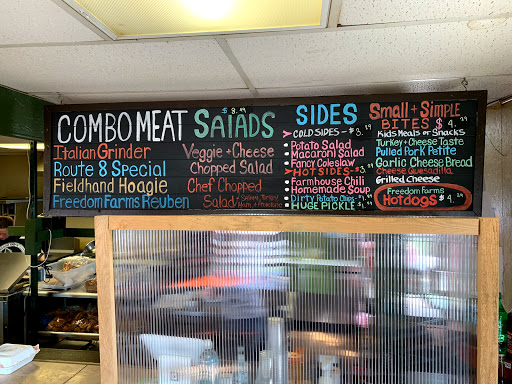 COMBO MEAT
Italian Grinder
Route 8 Special
Fieldhand Hoagie
Freedom Farms Reuben
SALADS
Veggie + Cheese
Chopped Salad
Chef Chopped
Salad
SIDES
COLD SIDES
Potato Salad
Macaroni Salad
Fancy Coleslaw
HOT SIDES
Farmhouse Chili
Homemade Soup
DIRTY Potato Chips
HUGE PICKLE
Small + Simple
BITES $4.
Kids Meals or Snacks
Turkey + Cheese Taste
Pulled Pork Petite
Garlic Cheese Bread
Cheese Quesadilla
Grilled Cheese
Freedom Farms
Hotdogs $4.